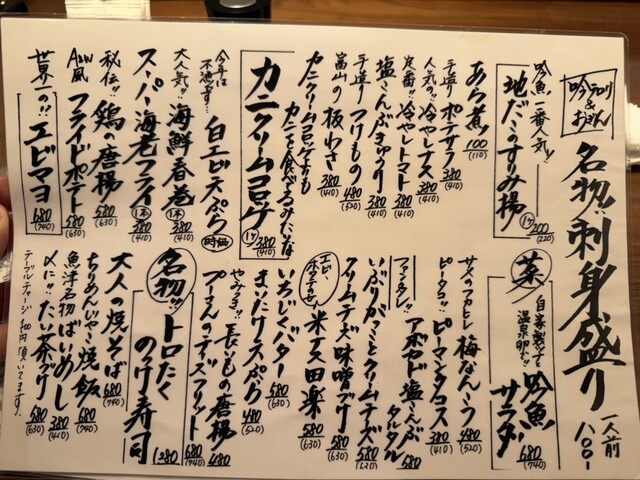 吟テロリ
&
おさしん
名物!! 刺身盛り 一人前 八〇〇-
吟魚一番人気!!
地だこのすり身揚 1ヶ 200 (220)
あら煮 100 (110)
手造りポテサラ 380 (410)
人気の!!冷やしナス 380 (410)
定番!!冷やしトマト 380 (410)
塩こんぶきゅうり 380 (410)
手造りつけもの 480 (520)
富山の板わさ 380 (410)
カニクリームコロッケよりも
カニを食べてるみたいな
カニクリームコロッケ 1ヶ 380 (410)
今年は
不漁です…
白エビ天ぷら 時価
大人気!!海鮮春巻 1本 380 (410)
スーパー海老フライ 1本 380 (410)
秘伝!!鶏の唐揚 580 (630)
A&W風 フライドポテト 580 (630)
世界一の!!エビマヨ 680 (740)
菜
自家製ツナと
温泉卵が!!
吟魚サラダ 680 (740)
サメのフカヒレ 梅なんこつ 480 (520)
ピータコ!!ピーマンタコス 380 (410)
ファンタスティック!!
アボカド塩こんぶタルタル 580
いぶりがっことクリームチーズ 580 (630)
クリームチーズ味噌づけ 580 (630)
エビ、ホタテ
米ナス田楽 580 (630)
いちじくバター 580 (630)
まいたけ天ぷら 480 (520)
やみつき!!長いもの唐揚 480
680 (740)
名物!!トロたくのっけ寿司 1280
大人の焼そば 680 (740)
ちりめんじゃこ焼飯 680 (740)
魚津名物ばいめし 380 (410)
〆に!!たい茶づけ 580 (630)
テーブルチャージ400円頂いてます。